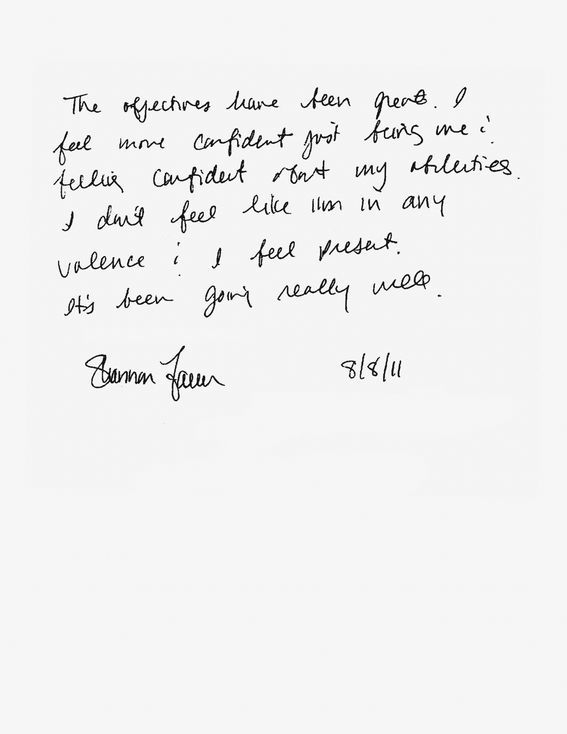 The objectives have been great. I
feel more confident just being me &
feeling confident about my abilities.
I don't feel like I'm in any
valence & I feel present.
It's been going really well.
Shannon 8/8/11